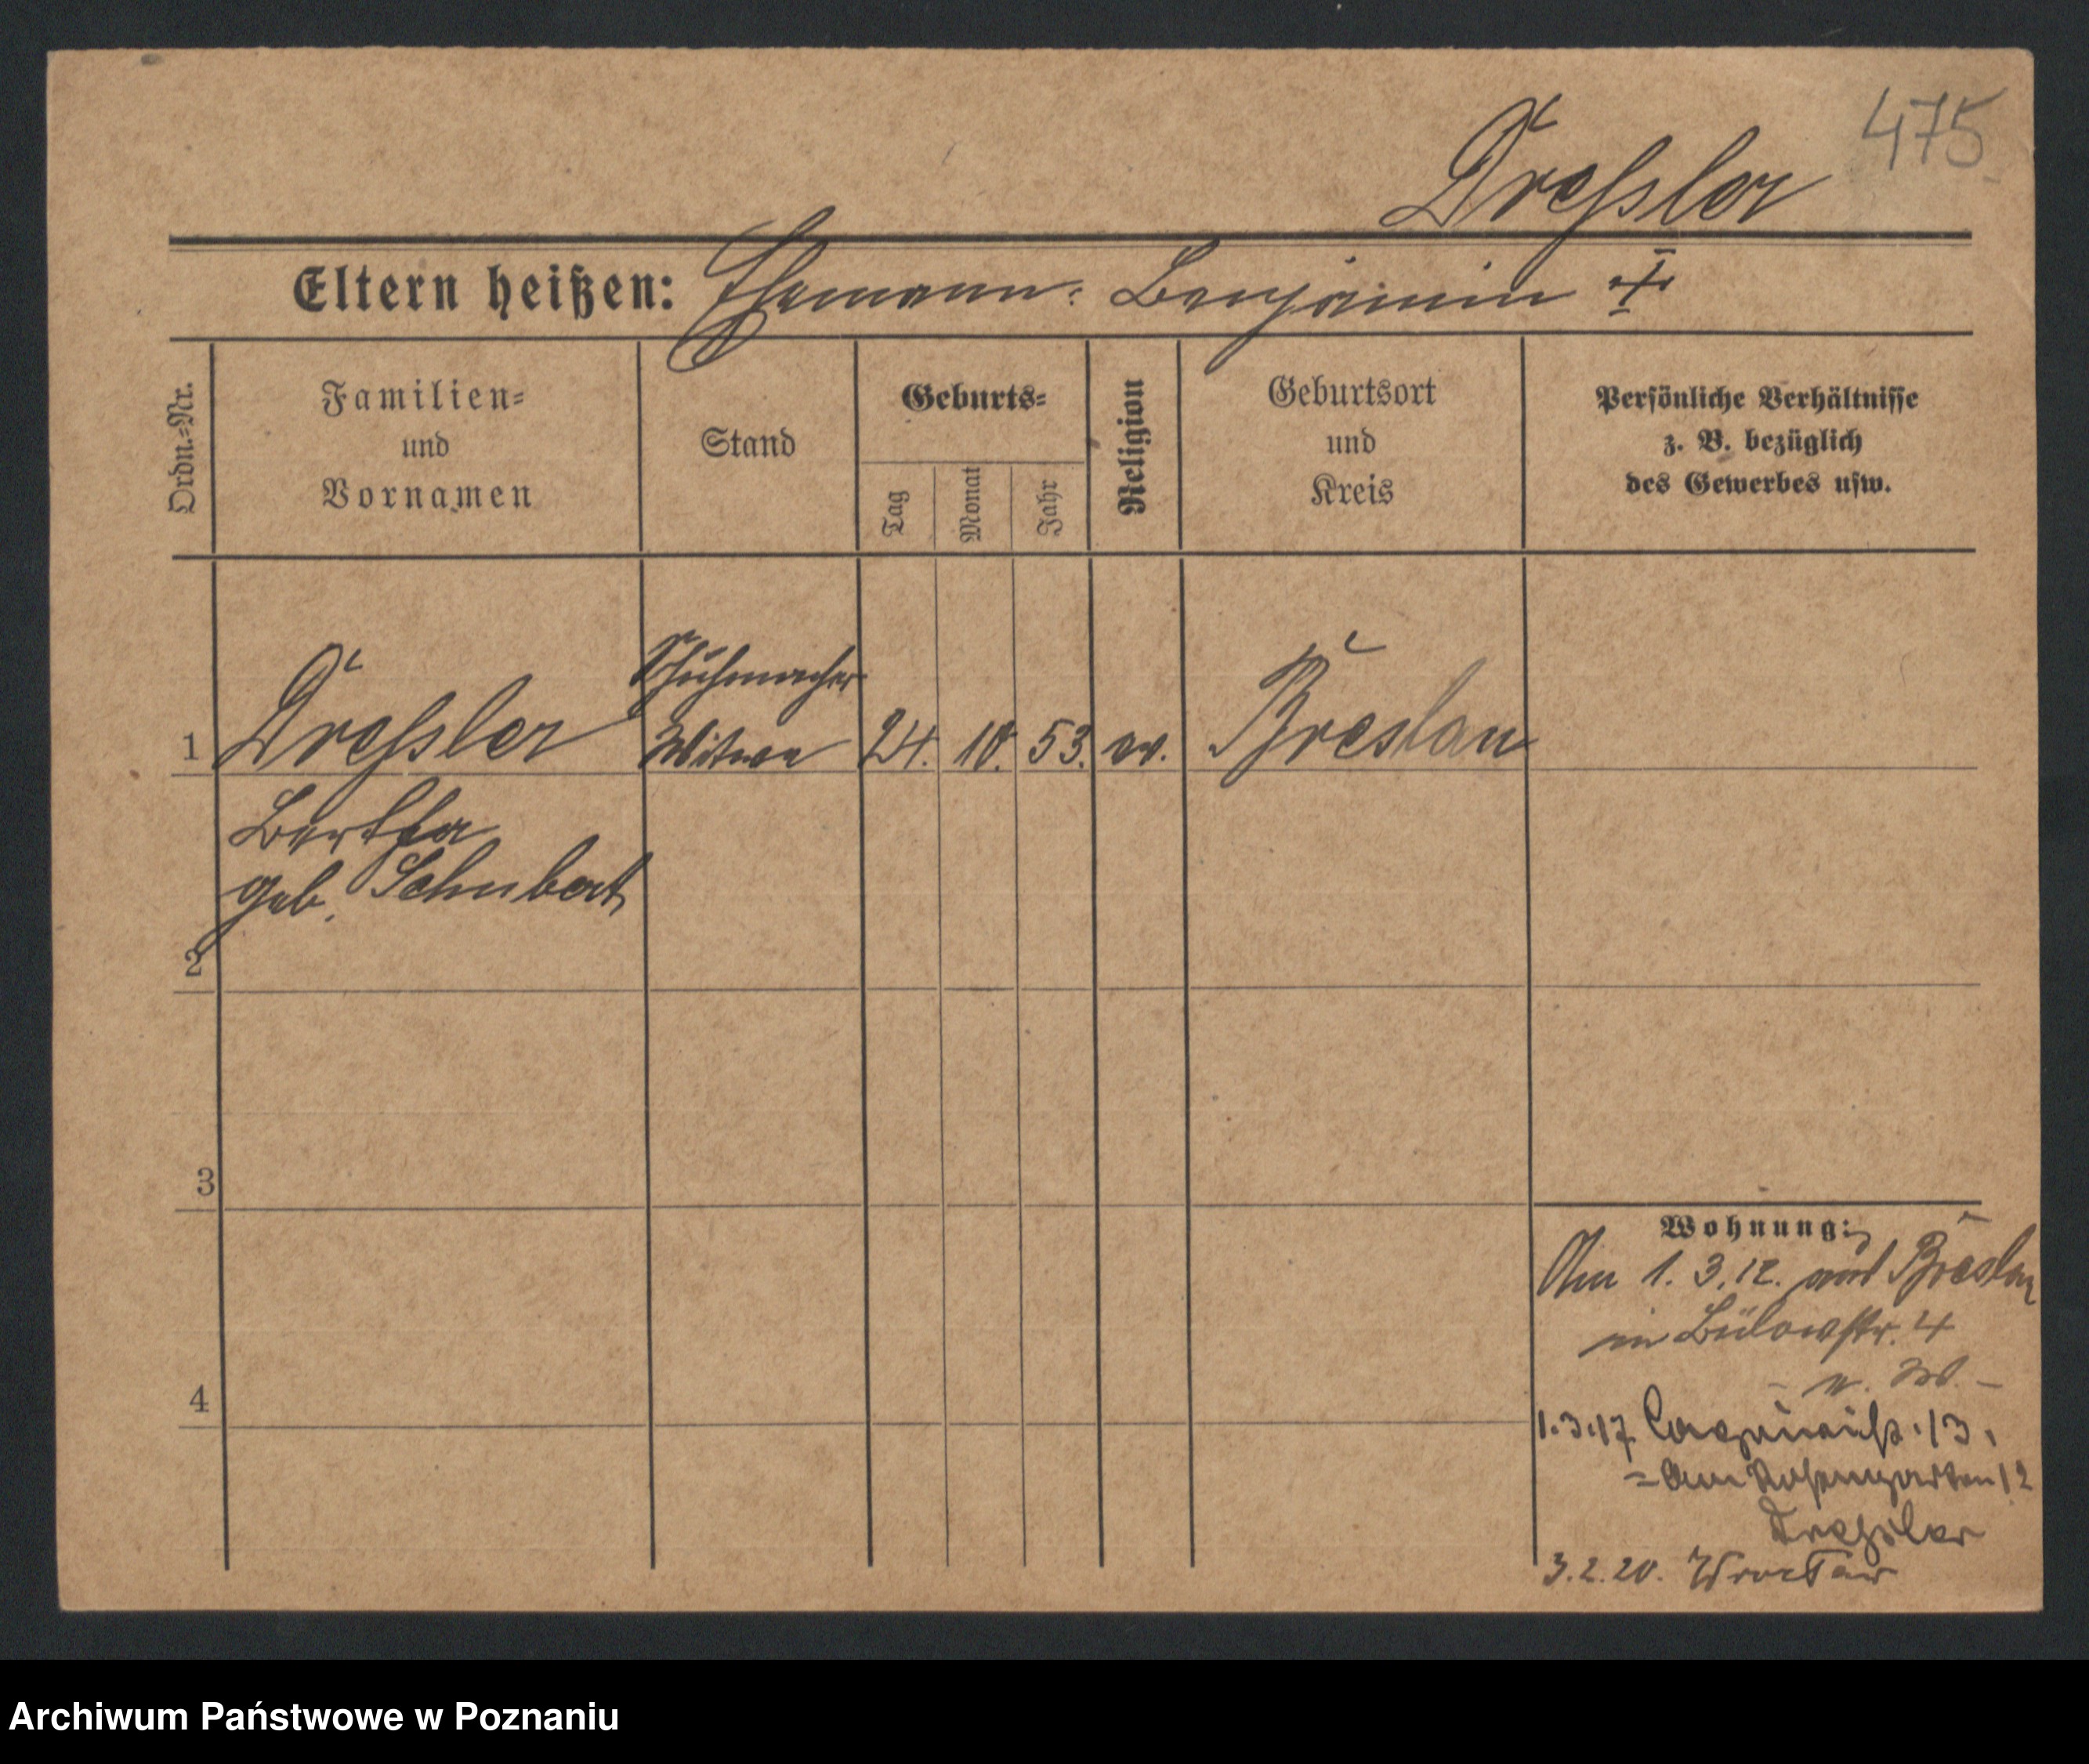 475
Dreßler
Eltern heißen: Ehemann: Benjamin ‡
Ordn.=Nr.
Familien=
und
Vornamen
Stand
Geburts=
Tag
Monat
Jahr
Religion
Geburtsort
und
Kreis
Persönliche Verhältnisse
z. B. bezüglich
des Gewerbes usw.
Schuhmacher
1 Dreßler Witwe 24. 10. 53. ev. Breslau
Bertha
geb. Schubert
2
3
4
Wohnung:
Am 1. 3. 12. aus Breslau
in Bülowstr. 4
1.3.17. 13.
= Am Rosengarten 12
Dreßler
3.2.20. Wrocław
Archiwum Państwowe w Poznaniu